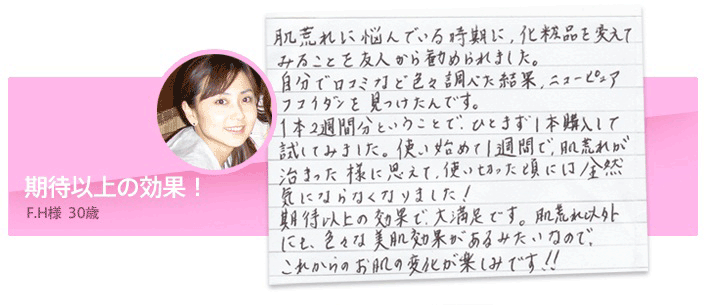 肌荒れに悩んでいる時期に、化粧品を変えて
みることを友人から勧められました。
自分で口コミなど色々調べた結果、ニューピュア
フコイダンを見つけたんです。
1本2週間分ということで、ひとまず1本購入して
試してみました。使い始めて1週間で、肌荒れが
治まった様に思えて、使い切った頃には全然
気にならなくなりました！
期待以上の効果で、大満足です。肌荒れ以外
にも、色々な美肌効果があるみたいなので、
これからのお肌の変化が楽しみです!!
期待以上の効果！
F.H様 30歳